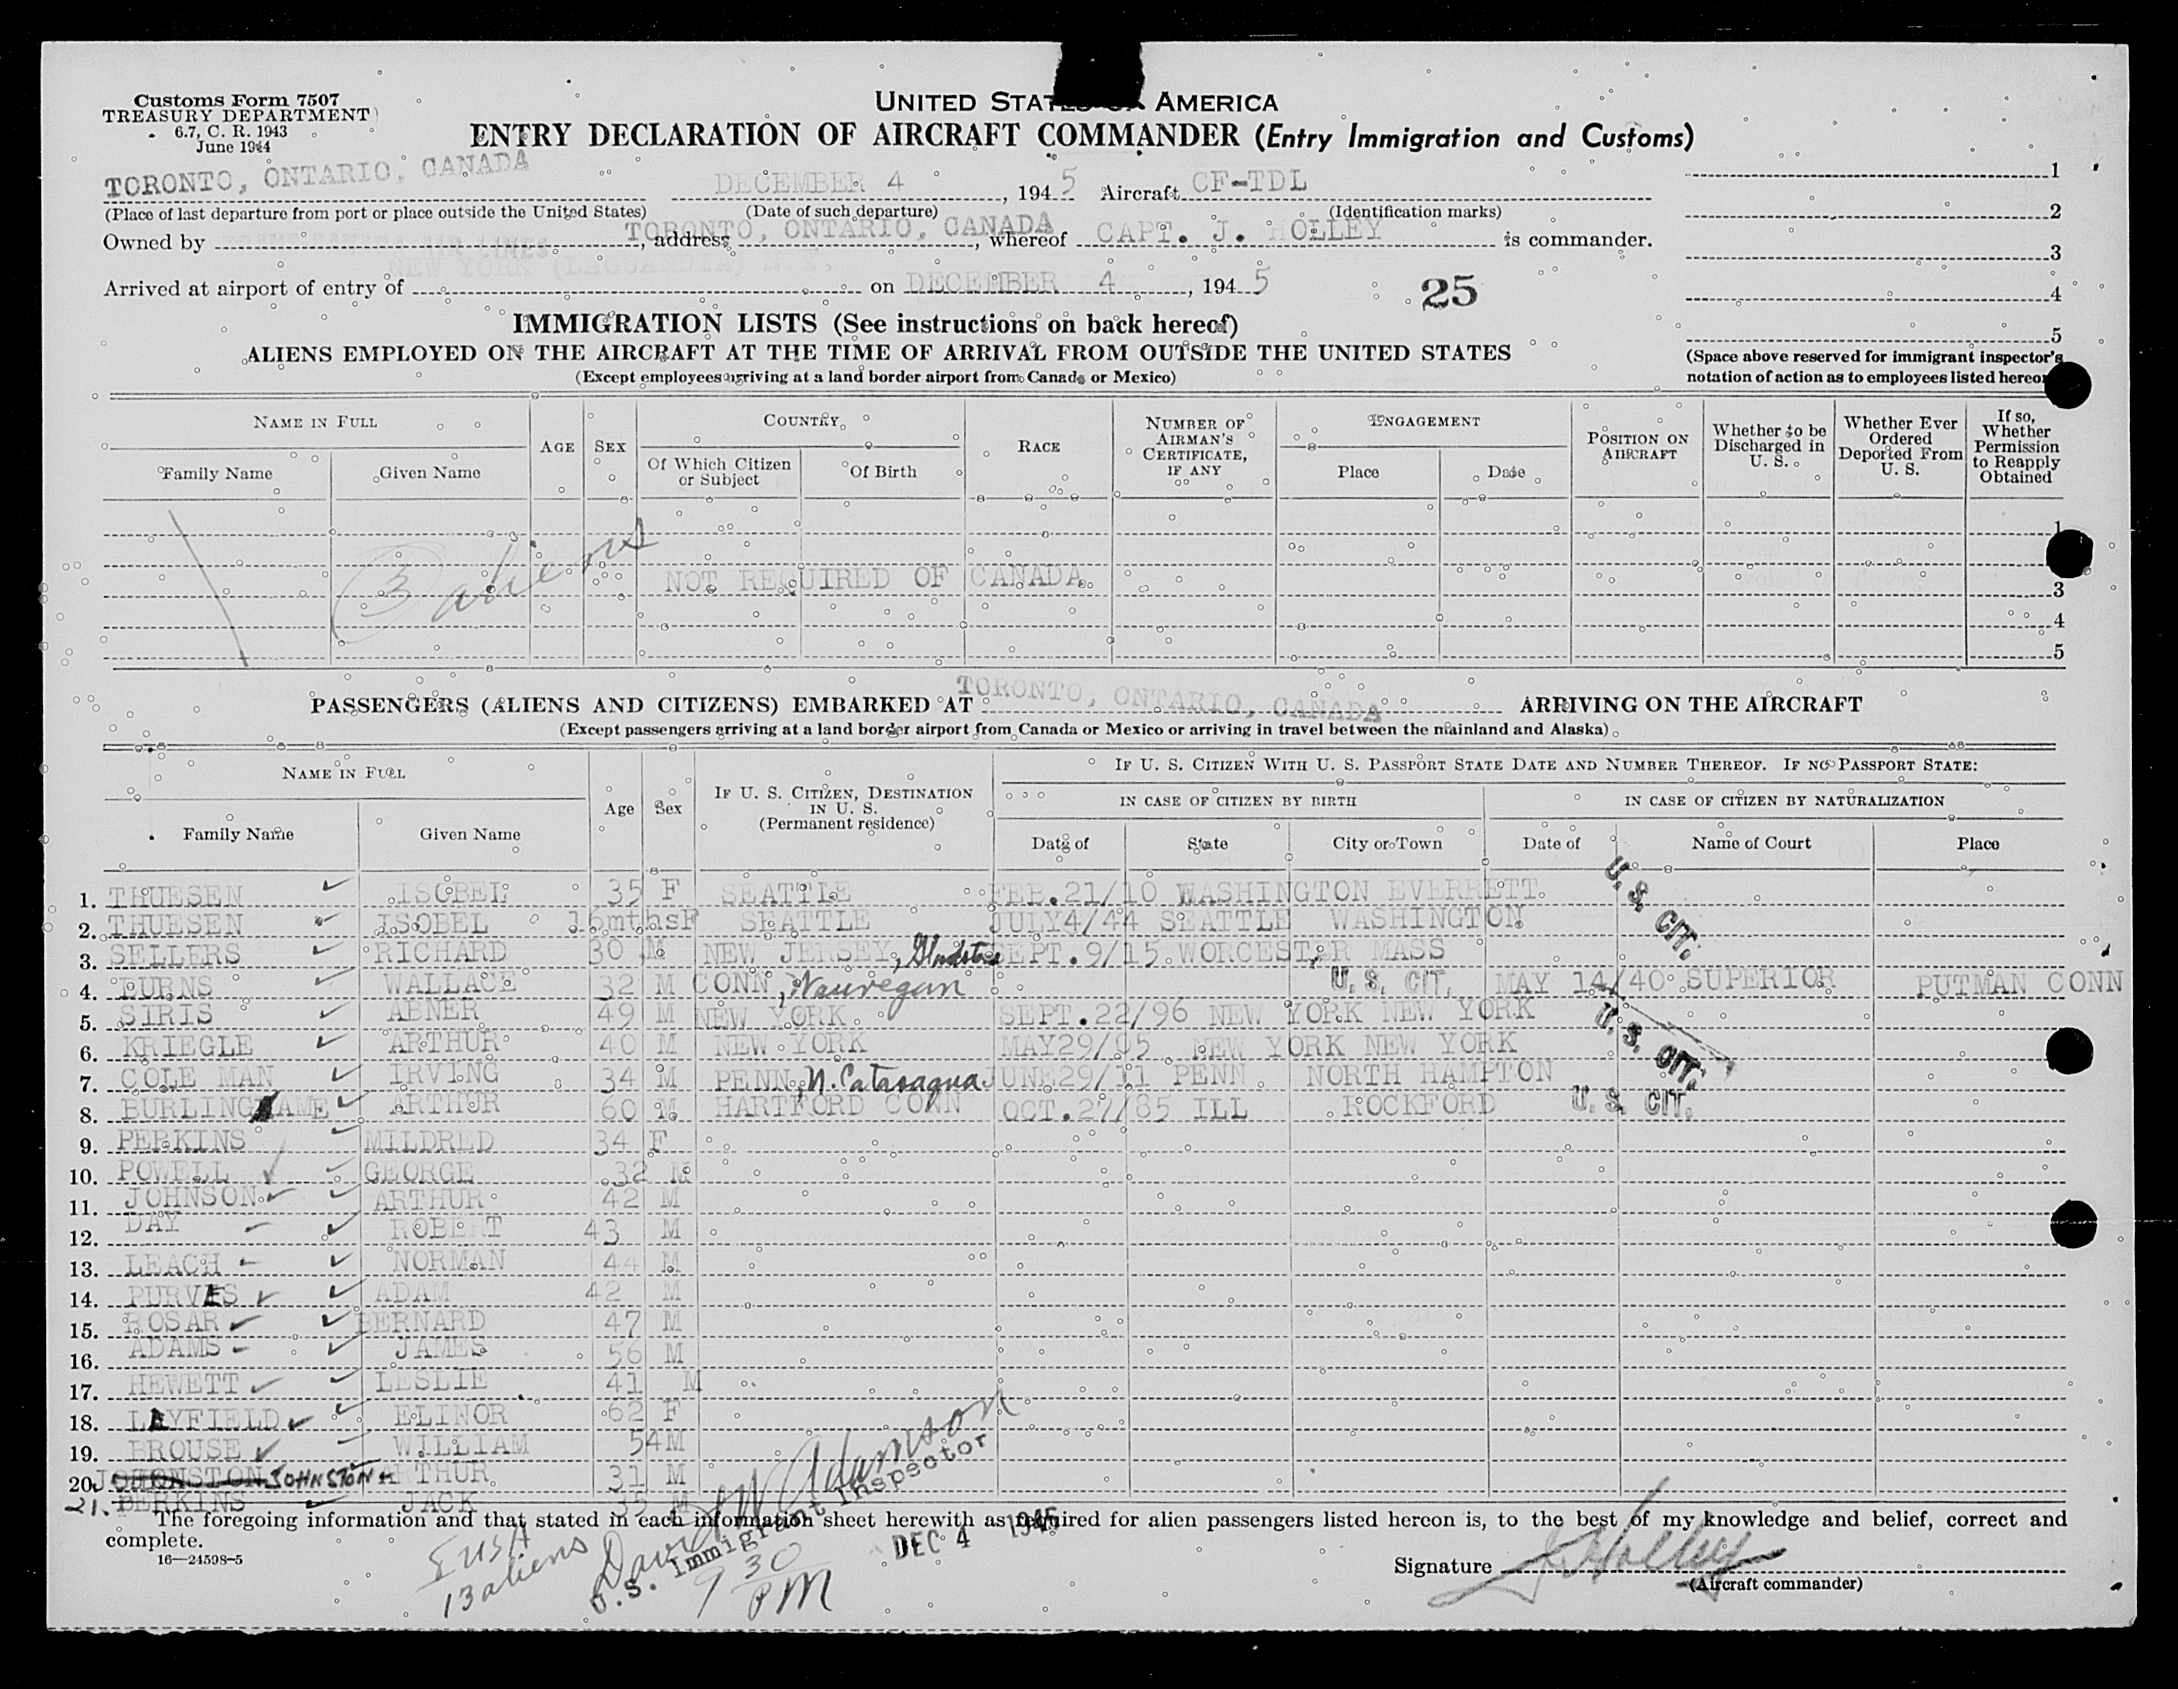 Customs Form 7507
TREASURY DEPARTMENT
6.7, C. R. 1943
June 1944
UNITED STATES OF AMERICA
ENTRY DECLARATION OF AIRCRAFT COMMANDER (Entry Immigration and Customs)
TORONTO, ONTARIO, CANADA DECEMBER 4, 1945 Aircraft CF-TDL
(Place of last departure from port or place outside the United States) (Date of such departure) (Identification marks)
Owned by TRANS CANADA AIR LINES, address TORONTO, ONTARIO, CANADA, whereof CAPT. J. HOLLEY is commander.
NEW YORK (LAGUARDIA) N.Y.
Arrived at airport of entry of on DECEMBER 4, 1945 25
1
2
3
4
5
(Space above reserved for immigrant inspector's
notation of action as to employees listed hereon
IMMIGRATION LISTS (See instructions on back hereof)
ALIENS EMPLOYED ON THE AIRCRAFT AT THE TIME OF ARRIVAL FROM OUTSIDE THE UNITED STATES
(Except employees arriving at a land border airport from Canada or Mexico)
NAME IN FULL
Family Name Given Name
AGE SEX
COUNTRY
Of Which Citizen or Subject Of Birth
RACE
NUMBER OF AIRMAN'S CERTIFICATE, IF ANY
ENGAGEMENT
Place Date
POSITION ON AIRCRAFT
Whether to be Discharged in U. S.
Whether Ever Ordered Deported From U. S.
If so, Whether Permission to Reapply Obtained
1
3
4
5
3 aliens
NOT REQUIRED OF CANADA
PASSENGERS (ALIENS AND CITIZENS) EMBARKED AT TORONTO, ONTARIO, CANADA ARRIVING ON THE AIRCRAFT
(Except passengers arriving at a land border airport from Canada or Mexico or arriving in travel between the mainland and Alaska)
NAME IN FULL
Family Name Given Name
Age Sex
IF U. S. CITIZEN, DESTINATION IN U. S. (Permanent residence)
IF U. S. CITIZEN WITH U. S. PASSPORT STATE DATE AND NUMBER THEREOF. IF NO PASSPORT STATE:
IN CASE OF CITIZEN BY BIRTH IN CASE OF CITIZEN BY NATURALIZATION
Date of State City or Town Date of Name of Court Place
1. THUESEN ISOBEL 35 F SEATTLE FEB.21/10 WASHINGTON EVERRETT
2. THUESEN ISOBEL 16mthsF SEATTLE JULY4/44 SEATTLE WASHINGTON
U. S. CIT.
3. SELLERS RICHARD 30 M NEW JERSEY, Gladstone SEPT.9/15 WORCESTER MASS
4. BURNS WALLACE 32 M CONN, Wauregan U. S. CIT. MAY 14/40 SUPERIOR PUTMAN CONN
5. SIRIS ABNER 49 M NEW YORK SEPT.22/96 NEW YORK NEW YORK
6. KRIEGLE ARTHUR 40 M NEW YORK MAY29/05 NEW YORK NEW YORK
U. S. CIT.
7. COLE MAN IRVING 34 M PENN, N. Catasaqua JUNE29/11 PENN NORTH HAMPTON
8. BURLINGHAME ARTHUR 60 M HARTFORD CONN OCT.27/85 ILL ROCKFORD U. S. CIT.
9. PERKINS MILDRED 34 F
10. POWELL GEORGE 32 M
11. JOHNSON ARTHUR 42 M
12. DAY ROBERT 43 M
13. LEACH NORMAN 44 M
14. PURVES ADAM 42 M
15. ROSAR BERNARD 47 M
16. ADAMS JAMES 56 M
17. HEWETT LESLIE 41 M
18. LAYFIELD ELINOR 62 F
19. BROUSE WILLIAM 54M
20. JOHNSTON ARTHUR 31 M
21. PERKINS JACK 35 M
The foregoing information and that stated in each information sheet herewith as required for alien passengers listed hereon is, to the best of my knowledge and belief, correct and
complete.
16—24598-5
8 USA
13 aliens
David W Adamson
U.S. Immigrant Inspector
9 30 PM
DEC 4 1945
Signature J Holley
(Aircraft commander)